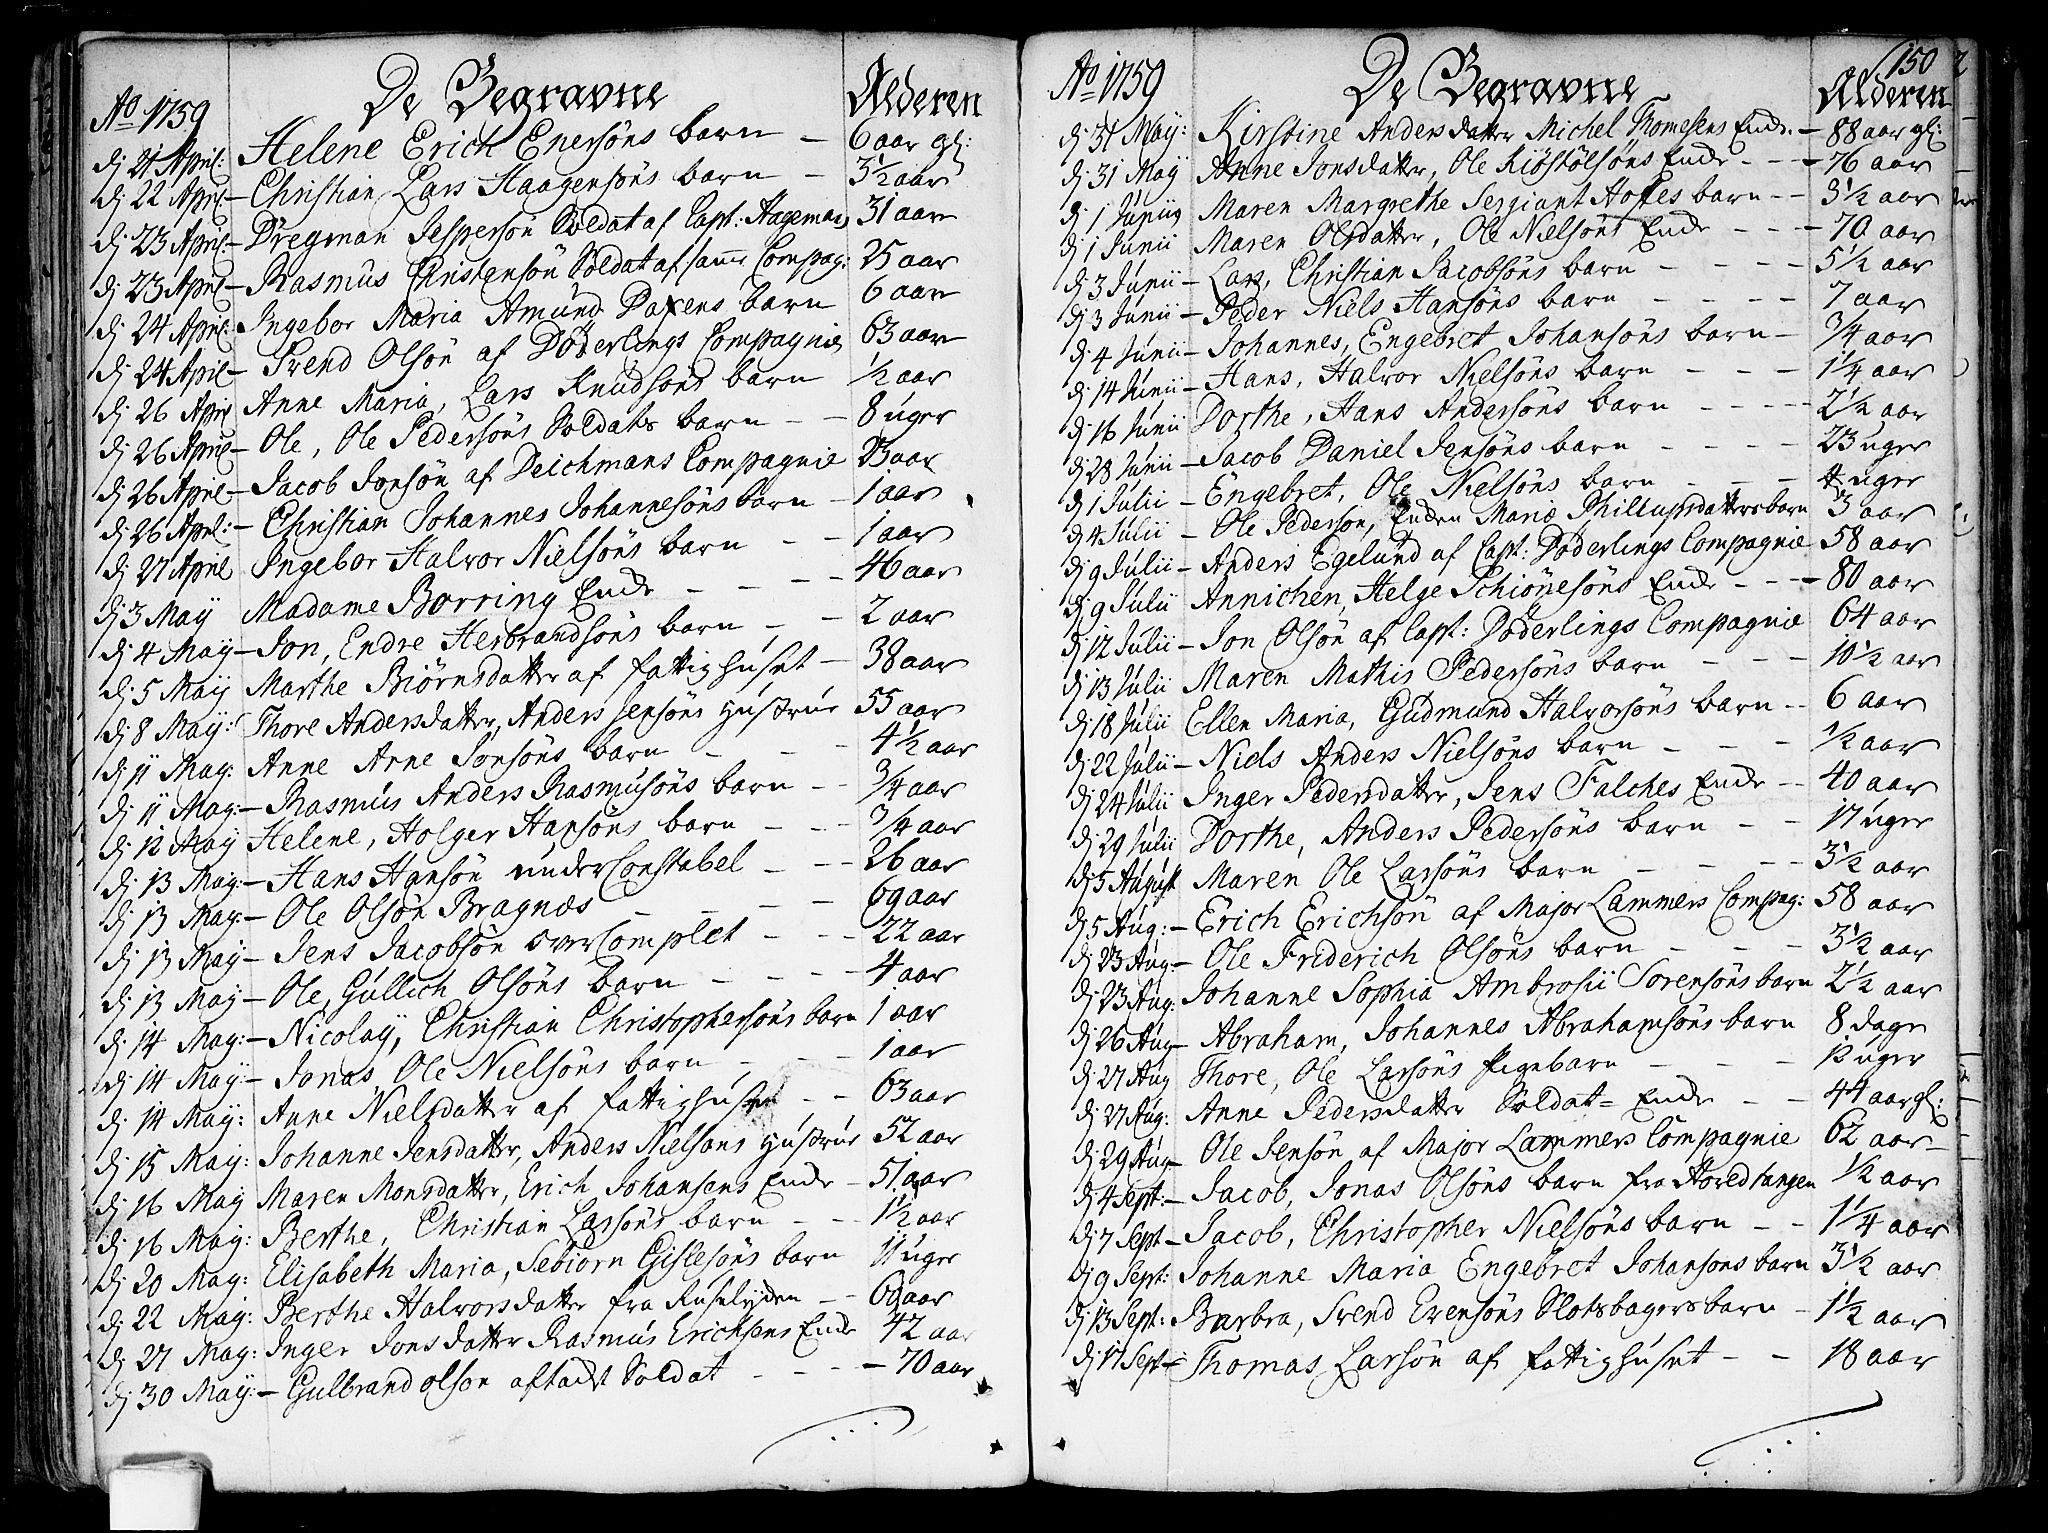 Ao 1759 De Begravne Alderen
dj 21 April: Helene Erich Enersöns barn — 6 aar gl:
dj 22 April — Christian Lars Haagensöns barn — 3½ aar
dj 23 April — Dregman Jesperson Soldat af Capt: Hagemans 31 aar
dj 23 April — Rasmus Christensön Soldat af samme Compag: 25 aar
dj 24 April: Ingebor Maria Amund Daxens barn 6 aar
dj 24 April — Svend Olsön af Döderlings Compagnie 63 aar
dj 26 April Anne Maria, Lars Knudsöns barn ½ aar
dj 26 April — Ole, Ole Pedersöns Soldats barn — 8 uger
dj 26 April — Jacob Jonsön af Deichmans Compagnie 23 aar
dj 26 April: — Christian Johannes Johannesöns barn — 1 aar
dj 27 April Ingebor Halvor Nielsöns barn — — 1 aar
dj 3 May Madame Borring Enke — — — 46 aar
dj 4 May — Jon, Endre Herbrandsöns barn — — 2 aar
dj 5 May Marthe Biörnsdatter af fattighuset — 38 aar
dj 8 May: Thore Andersdatter, Anders Jensöns Hustrue 55 aar
dj 11 May: Anne Arne Jonsöns barn — — — 4½ aar
dj 11 May: — Rasmus Anders Rasmusöns barn — — ¾ aar
dj 12 May Helene, Holger Hansöns barn — — — ¾ aar
dj 13 May: — Hans Hansön underConstabel — — — 26 aar
dj 13 May: — Ole Olsön Bragnæs — — — — 69 aar
dj 13 May — Jens Jacobsön overComplet — — — 22 aar
dj 13 May — Ole, Gullich Olsöns Barn — — — — 4 aar
dj 14 May: — Nicolay, Christian Christophersöns barn 1 aar
dj 14 May: — Jonas, Ole Nielsöns barn — — — 1 aar
dj 14 May: Anne Nielsdatter af fattighuset — — 63 aar
dj 15 May: Johanne Jensdatter, Anders Nielsöns Hustrue 52 aar
dj 16 May Maren Monsdatter, Erich Johansens Enke — 51 aar
dj 16 May: Berthe, Christian Larsöns barn — — 1½ aar
dj 20 May: Elisabeth Maria, Sebiorn Gislesöns barn 11 uger
dj 22 May: Berthe Halvorsdatter fra — — 69 aar
dj 27 May: Inger Jonsdatter Rasmus Erichsens Enke 42 aar
dj 30 May: — Gulbrand olson aftackt Soldat — — — 70 aar
150
Ao 1759 De Begravne Alderen
dj 31 May: Kirstine Andersdatter Michel Thomesens Enke — 88 aar gl:
dj 31 May Anne Jonsdatter, Ole Kiöstölsöns Enke — — — 76 aar
dj 1 Junii Maren Margrethe Sergiant Hoffes barn — — 3½ aar
dj 1 Junii Maren Olsdatter, Ole Nielsöns Enke — — — 70 aar
dj 3 Junii — Lars, Christian Jacobsöns barn — — — — 5½ aar
dj 3 Junii — Peder Niels Hansöns barn — — — — 7 aar
dj 4 Junii — Johannes, Engebret Johansöns barn — ¾ aar
dj 14 Junii — Hans, Halvor Nielsöns barn — — — 1¼ aar
dj 16 Junii Dorthe, Hans Andersöns barn — — — — 2½ aar
dj 28 Junii — Jacob Daniel Jensöns barn — — — — 23 uger
dj 1 Julii — Engebret, Ole Nielsöns barn — — — 4 uger
dj 4 Julii — Ole Pederson, Enken Marie Phillupsdatters barn 3 aar
dj 9 Julii — Anders Egelund af Capt: Döderlings Compagnie 58 aar
dj 9 Julii Annichen, Helge Schiönesöns Enke — — — 80 aar
dj 12 Julii — Jon Olsön af Capt: Döderlings Compagnie 64 aar
dj 13 Julii Maren Mathis Pedersöns barn — — — 10½ aar
dj 18 Julii Ellen Maria, Gudmund Halvorsöns barn — — 6 aar
dj 22 Julii — Niels Anders Nielsöns barn — — — ½ aar
dj 24 Julii Inger Pedersdatter, Jens Falches Enke — — 40 aar
dj 29 Julii Dorthe, Anders Pedersöns barn — — 17 uger
dj 5 August Maren Ole Larsöns barn — — — — 3½ aar
dj 5 Aug: — Erich Erichsön af Major Lammers Compag: 58 aar
dj 23 Aug: — Ole Friderich Olsöns barn — — — 3½ aar
dj 23 Aug: Johanne Sophia Ambrosii Sorensöns barn 2½ aar
dj 26 Aug — Abraham, Johannes Abrahamsöns barn 8 dage
dj 27 Aug Thore, Ole Larsöns Pigebarn — — — 12 uger
dj 27 Aug: Anne Pedersdatter Soldat= Enke — — 44 aar gl:
dj 29 Aug — Ole Jensön af Major Lammers Compagnie 62 aar —
dj 4 Sept: — Jacob, Jonas Olsöns barn fra Hovedtangen ½ aar
dj 7 Sept — Jacob, Christopher Nielsöns barn — — 1¼ aar
dj 9 Sept: Johanne Maria Engebret Johansöns barn 3½ aar
dj 13 Sept: Barbra, Svend Evensöns Slotsbagers barn — 1½ aar
dj 17 Sept — Thomas Larsön af fattighuset — — 18 aar